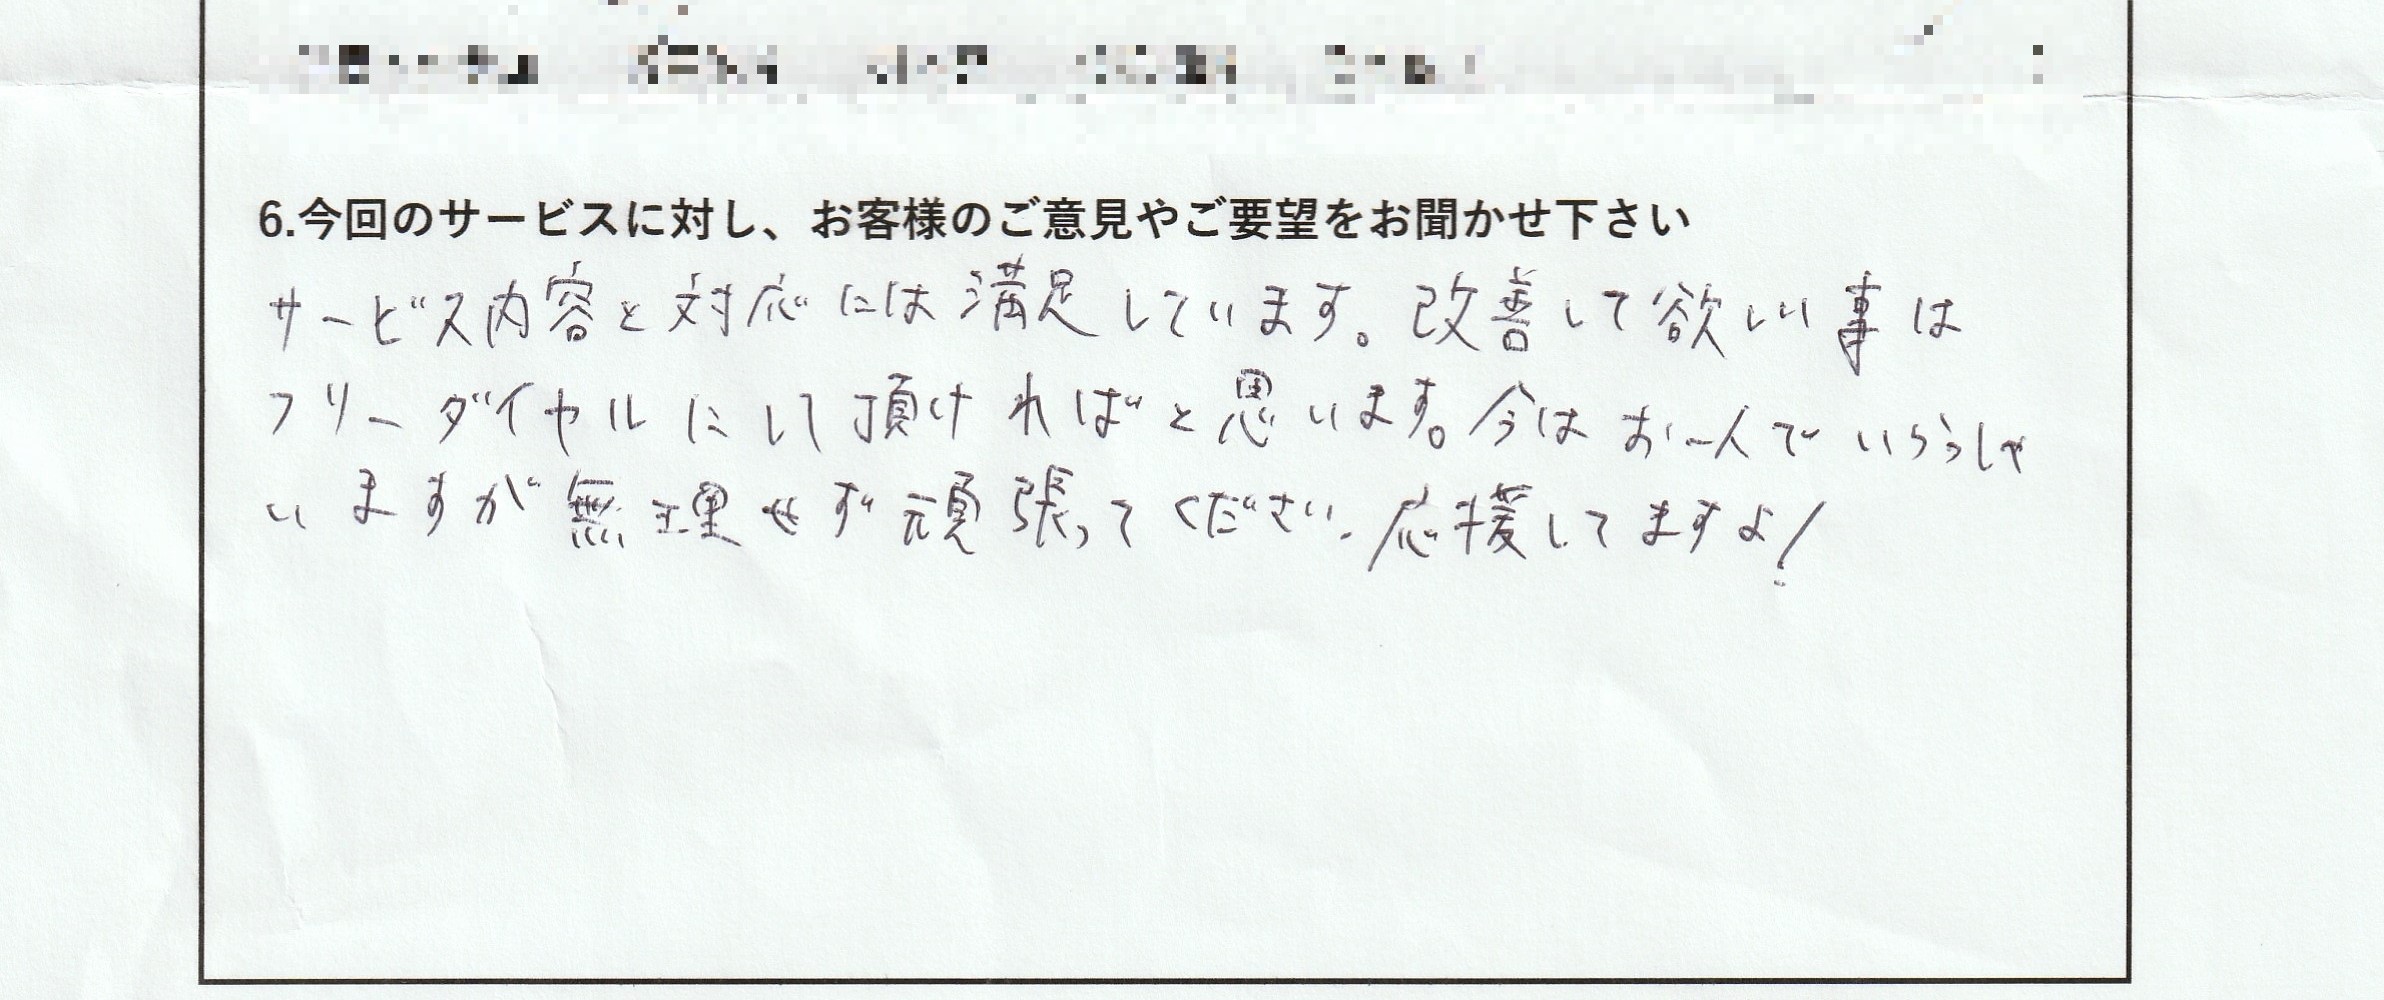 6.今回のサービスに対し、お客様のご意見やご要望をお聞かせ下さい
サービス内容と対応には満足しています。改善して欲しい事は
フリーダイヤルにして頂ければと思います。今はお一人でいらっしゃ
いますが無理せず頑張ってください。応援してますよ!